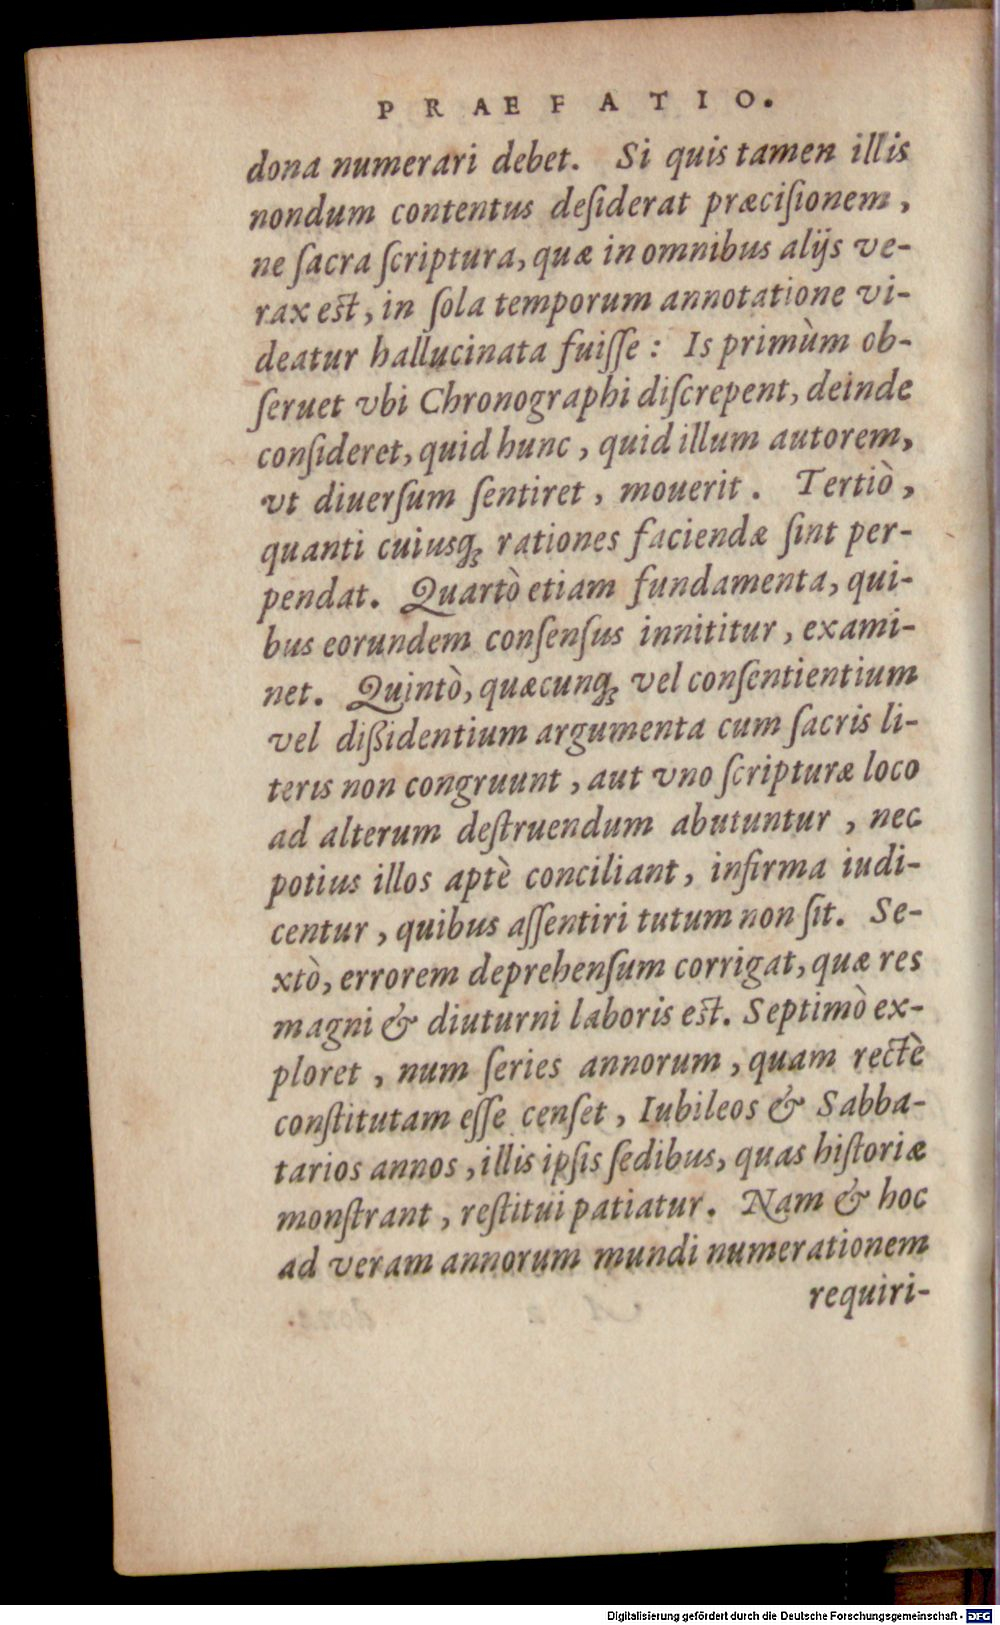 PRAEFATIO.
dona numerari debet. Si quis tamen illis
nondum contentus deſiderat præciſionem,
ne ſacra ſcriptura, quæ in omnibus alijs ve-
rax est, in ſola temporum annotatione vi-
deatur hallucinata fuiſſe: Is primùm ob-
ſeruet vbi Chronographi diſcrepent, deinde
conſideret, quid hunc, quid illum autorem,
vt diuerſum ſentiret, mouerit. Tertiò,
quanti cuiusq́; rationes faciendæ ſint per-
pendat. Quartò etiam fundamenta, qui-
bus eorundem conſenſus innititur, exami-
net. Quintò, quæcunq́; vel conſentientium
vel dißidentium argumenta cum ſacris li-
teris non congruunt, aut vno ſcripturæ loco
ad alterum deſtruendum abutuntur, nec
potius illos aptè conciliant, infirma iudi-
centur, quibus aſſentiri tutum non ſit. Se-
xtò, errorem deprehenſum corrigat, quæ res
magni & diuturni laboris est. Septimò ex-
ploret, num ſeries annorum, quam rectè
conſtitutam eſſe cenſet, Iubileos & Sabba-
tarios annos, illis ipſis ſedibus, quas hiſtoriæ
monſtrant, reſtitui patiatur. Nam & hoc
ad veram annorum mundi numerationem
requiri-
Digitalisierung gefördert durch die Deutsche Forschungsgemeinschaft - DFG